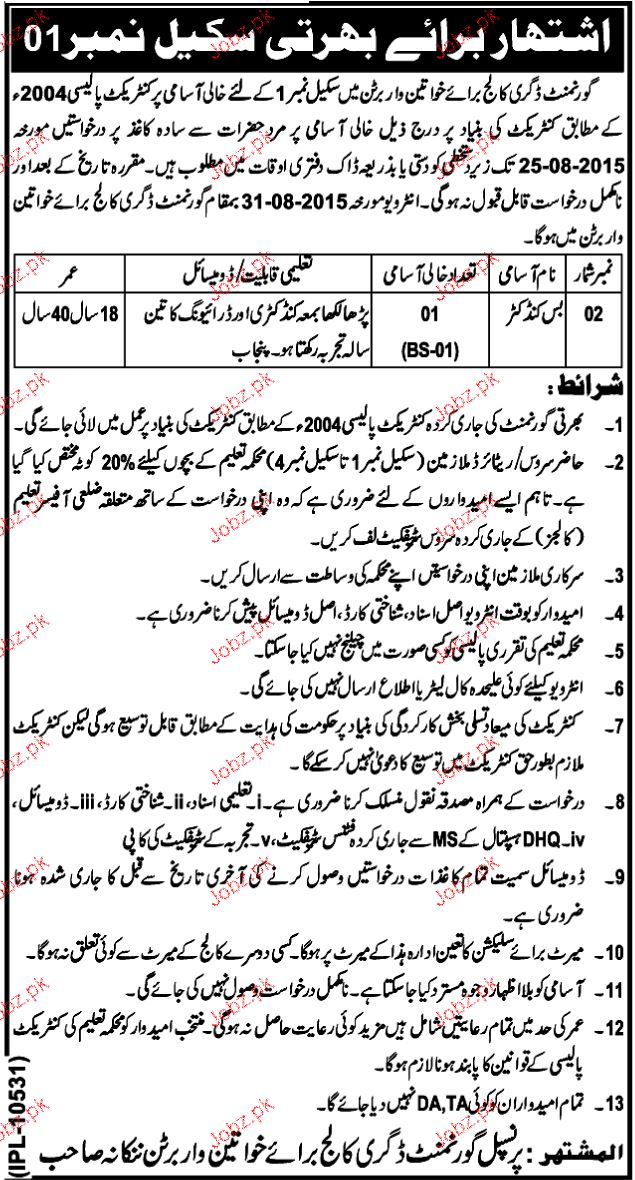 اشتہار برائے بھرتی سکیل نمبر 01
گورنمنٹ ڈگری کالج برائے خواتین واربرٹن میں سکیل نمبر 1 کے لئے خالی آسامی پر کنٹریکٹ پالیسی 2004ء
کے مطابق کنٹریکٹ کی بنیاد پر درج ذیل خالی آسامی پر مرد حضرات سے سادہ کاغذ پر درخواستیں مورخہ
25-08-2015 تک زیر دستخطی کو دستی یا بذریعہ ڈاک دفتری اوقات میں مطلوب ہیں۔ مقررہ تاریخ کے بعد اور
نامکمل درخواست قابل قبول نہ ہوگی۔ انٹرویو مورخہ 31-08-2015 بمقام گورنمنٹ ڈگری کالج برائے خواتین
واربرٹن میں ہوگا۔
نمبر شمار نام آسامی تعداد خالی آسامی تعلیمی قابلیت/ڈومیسائل عمر
02 بس کنڈکٹر 01 پڑھا لکھا بمعہ کنڈکٹری اور ڈرائیونگ کا تین 18 سال 40 سال
(BS-01) سالہ تجربہ رکھتا ہو۔ پنجاب
شرائط:
1۔ بھرتی گورنمنٹ کی جاری کردہ کنٹریکٹ پالیسی 2004ء کے مطابق کنٹریکٹ کی بنیاد پر عمل میں لائی جائے گی۔
2۔ حاضر سروس/ریٹائرڈ ملازمین (سکیل نمبر 1 تا سکیل نمبر 4) محکمہ تعلیم کے بچوں کیلئے 20% کوٹہ مختص کیا گیا
ہے۔ تاہم ایسے امیدواروں کے لئے ضروری ہے کہ وہ اپنی درخواست کے ساتھ متعلقہ ضلعی آفیسر تعلیم
(کالجز) کے جاری کردہ سروس سرٹیفکیٹ لف کریں۔
3۔ سرکاری ملازمین اپنی درخواستیں اپنے محکمہ کی وساطت سے ارسال کریں۔
4۔ امیدوار کو بوقت انٹرویو اصل اسناد، شناختی کارڈ، اصل ڈومیسائل پیش کرنا ضروری ہے۔
5۔ محکمہ تعلیم کی تقرری پالیسی کو کسی صورت میں چیلنج نہیں کیا جا سکتا۔
6۔ انٹرویو کیلئے کوئی علیحدہ کال لیٹر یا اطلاع ارسال نہیں کی جائے گی۔
7۔ کنٹریکٹ کی میعاد تسلی بخش کارکردگی کی بنیاد پر حکومت کی ہدایت کے مطابق قابل توسیع ہوگی لیکن کنٹریکٹ
ملازم بطور حق کنٹریکٹ میں توسیع کا دعویٰ نہیں کر سکے گا۔
8۔ درخواست کے ہمراہ مصدقہ نقول منسلک کرنا ضروری ہے۔ i۔ تعلیمی اسناد، ii۔ شناختی کارڈ، iii۔ ڈومیسائل،
iv۔ DHQ ہسپتال کے MS سے جاری کردہ فٹنس سرٹیفکیٹ، v۔ تجربہ کے سرٹیفکیٹ کی کاپی
9۔ ڈومیسائل سمیت تمام کاغذات درخواستیں وصول کرنے کی آخری تاریخ سے قبل کا جاری شدہ ہونا
ضروری ہے۔
10۔ میرٹ برائے سلیکشن کا تعین ادارہ ہذا کے میرٹ پر ہوگا۔ کسی دوسرے کالج کے میرٹ سے کوئی تعلق نہ ہوگا۔
11۔ آسامی کو بلا اظہار وجوہ مسترد کیا جا سکتا ہے۔ نامکمل درخواست وصول نہیں کی جائے گی۔
12۔ عمر کی حد میں تمام رعایتیں شامل ہیں مزید کوئی رعایت حاصل نہ ہوگی۔ منتخب امیدوار کو محکمہ تعلیم کی کنٹریکٹ
پالیسی کے قوانین کا پابند ہونا لازم ہوگا۔
13۔ تمام امیدواران کو کوئی DA,TA نہیں دیا جائے گا۔
المشتہر: پرنسپل گورنمنٹ ڈگری کالج برائے خواتین واربرٹن ننکانہ صاحب
(IPL-10531)
Jobz.pk